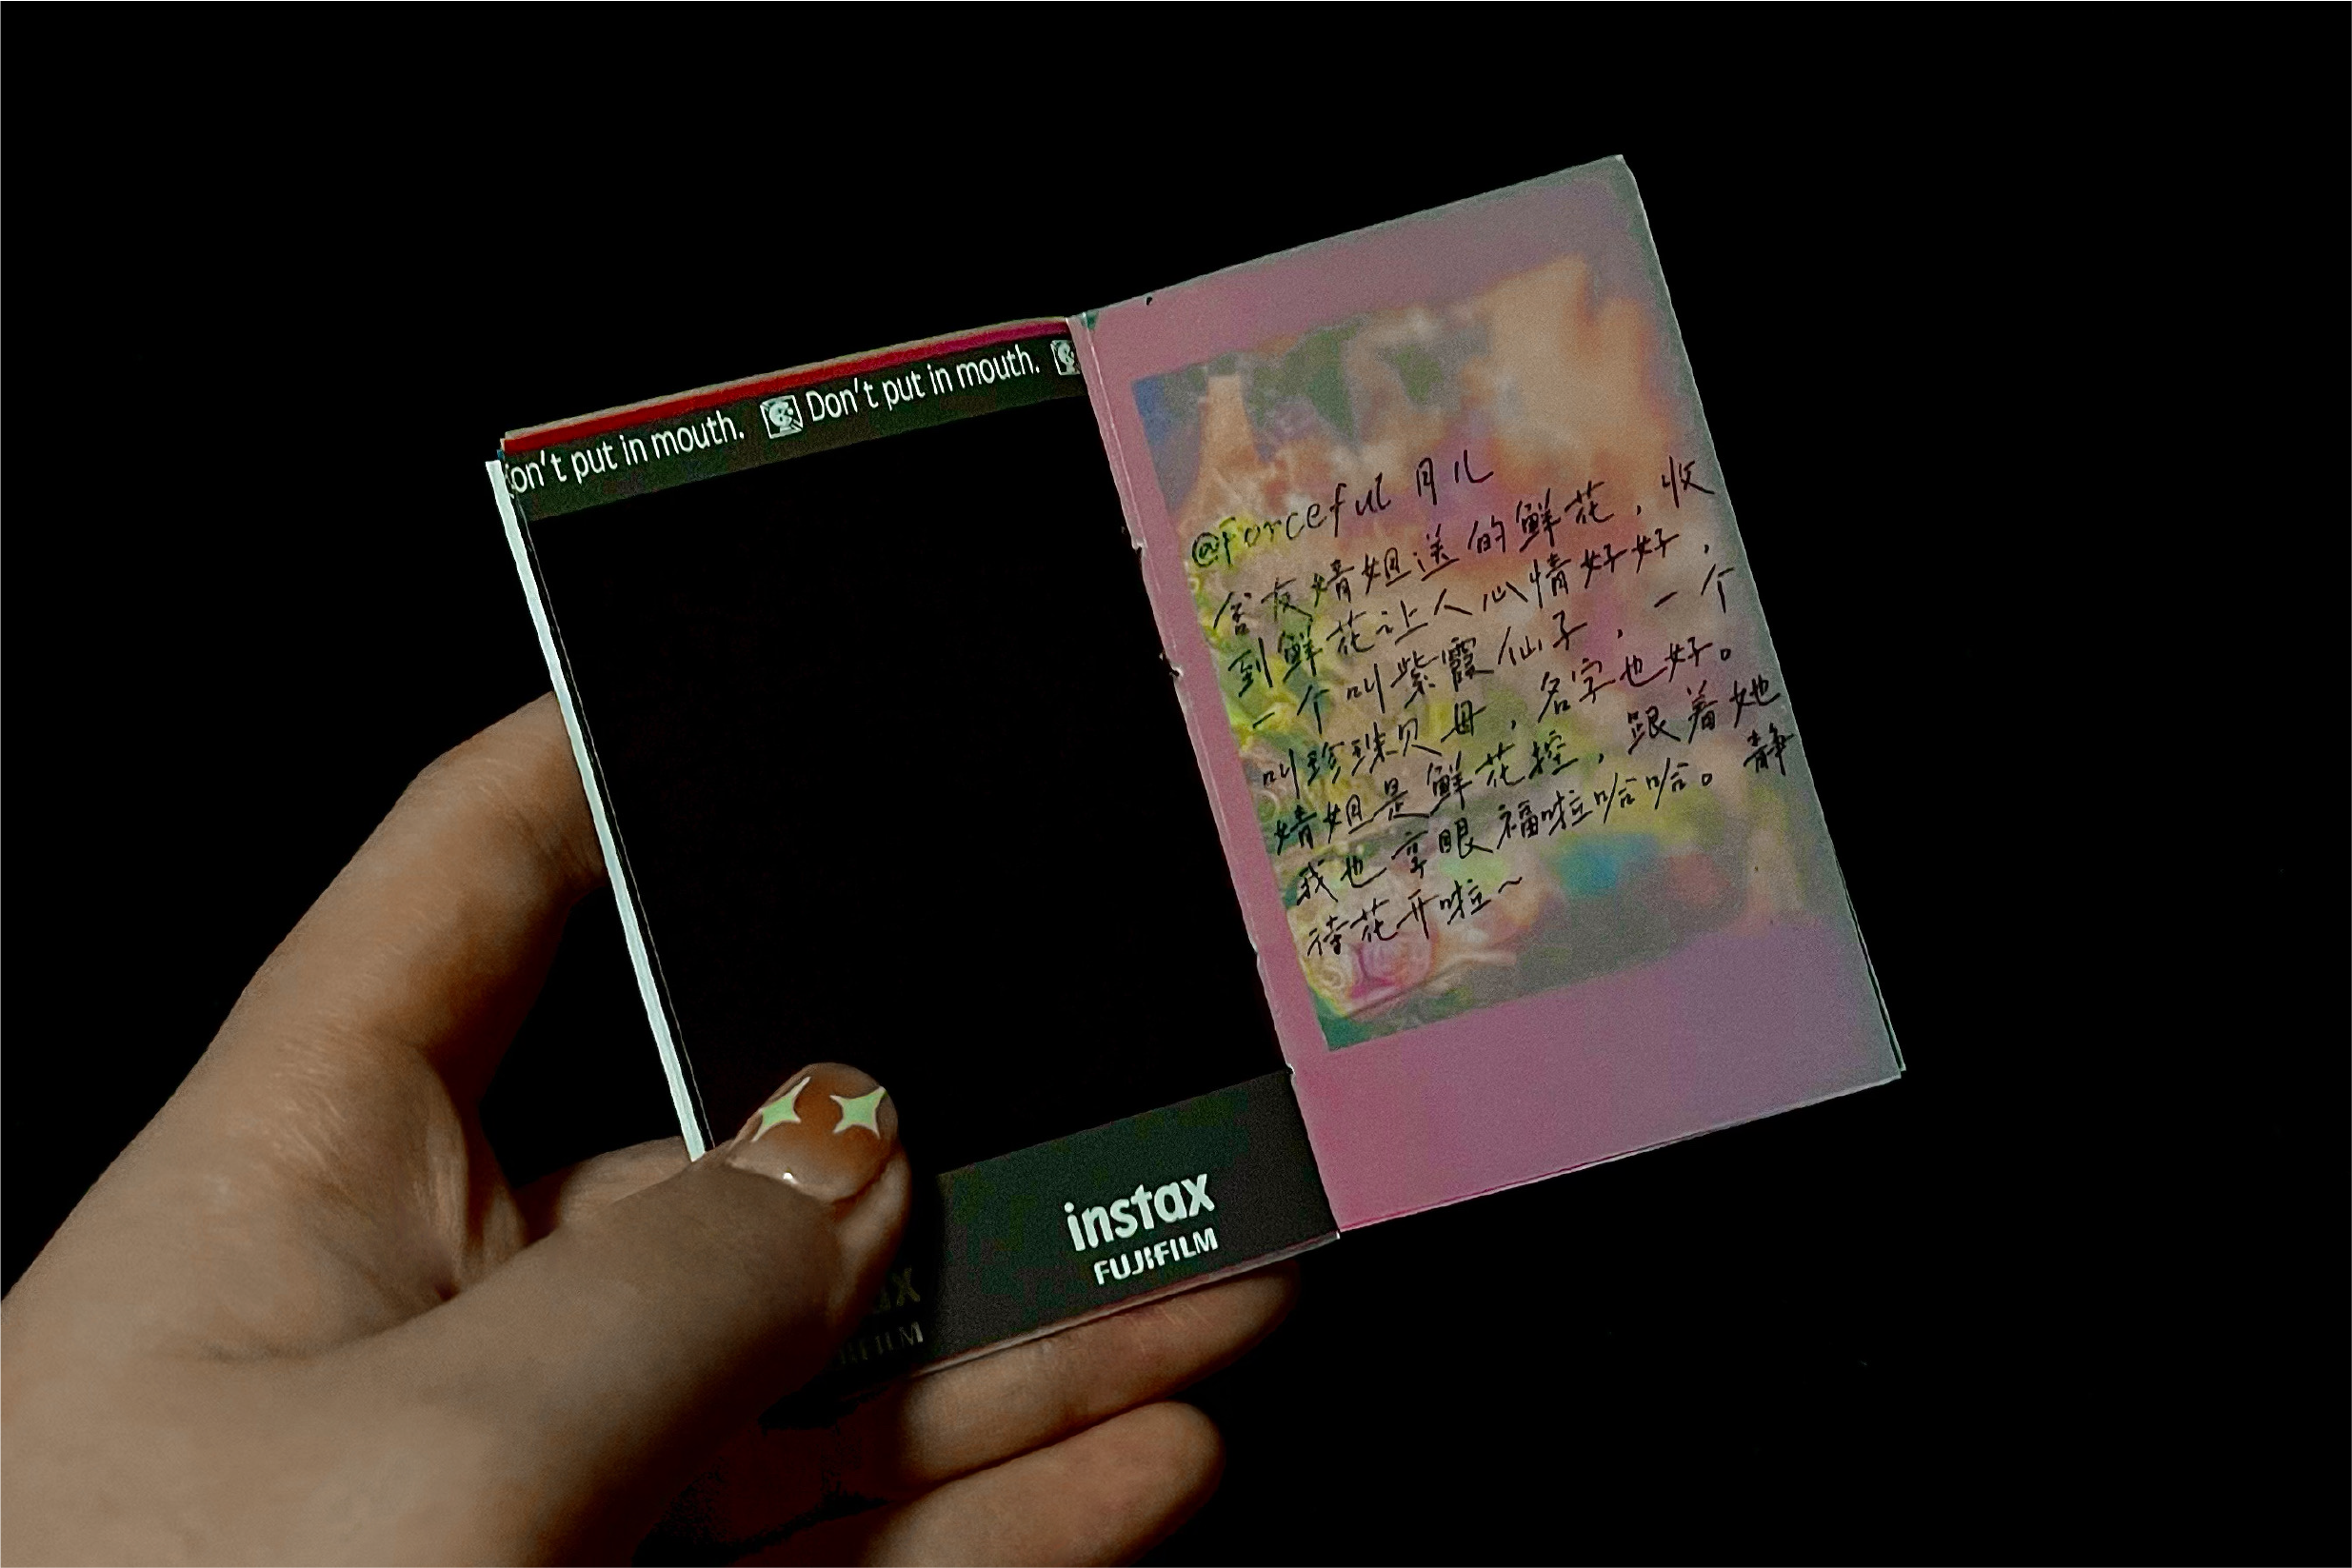 on't put in mouth. Don't put in mouth.
instax
FUJIFILM
ax
FILM
@Forceful 月儿
舍友婧姐送的鲜花，收
到鲜花让人心情好好，
一个叫紫霞仙子，一个
叫珍珠贝母，名字也好。
婧姐是鲜花控，跟着她
我也享眼福啦哈哈。静
待花开啦~